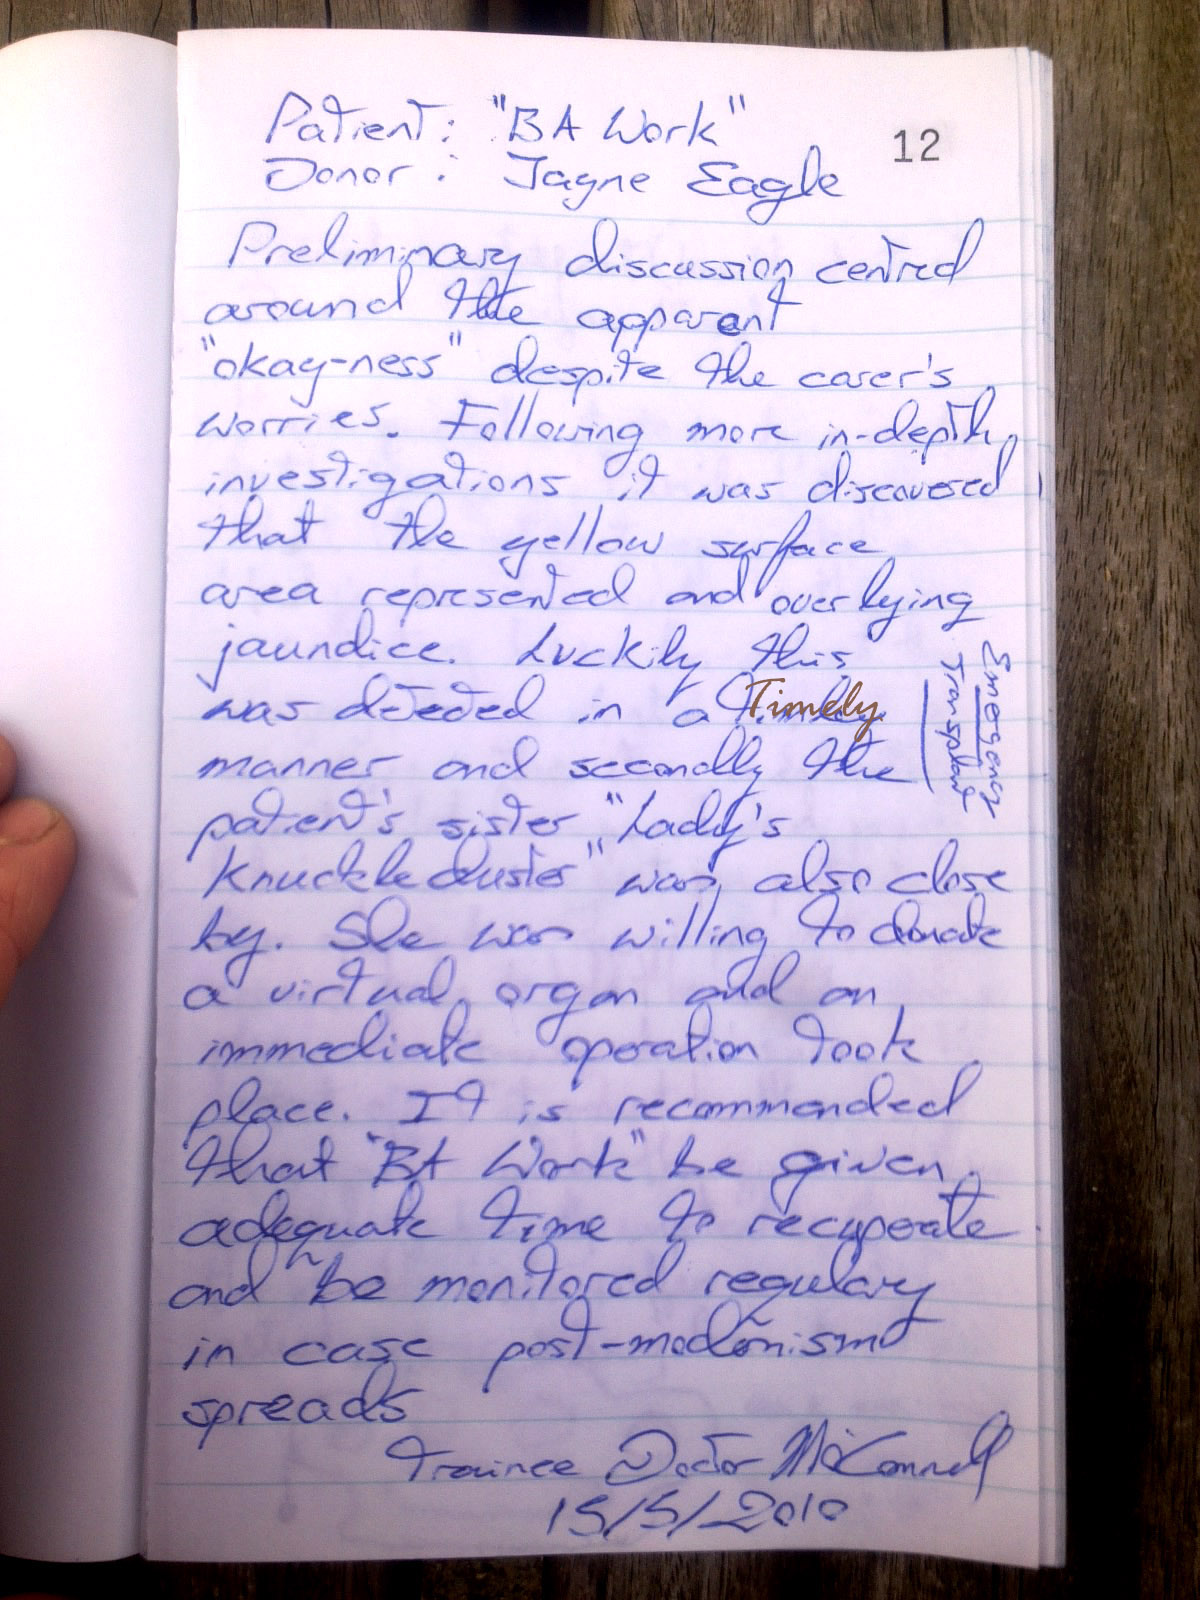 Patient: "BA Work"
12
Donor: Jayne Eagle
Preliminary discussion centred
around the apparent
"okay-ness" despite the carer's
worries. Following more in-depth
investigations it was discovered
that the yellow surface
area represented and overlying
jaundice. Luckily this
was detected in a Timely
manner and secondly the
patient's sister, "Lady's
Knuckleduster" was also close
by. She was willing to donate
a virtual organ and an
immediate operation took
place. It is recommended
that "BA Work" be given
adequate time to recuperate
and be monitored regulary
in case post-modernism
spreads
Trainee Doctor McConnell
15/5/2010
Emergency
Transplant